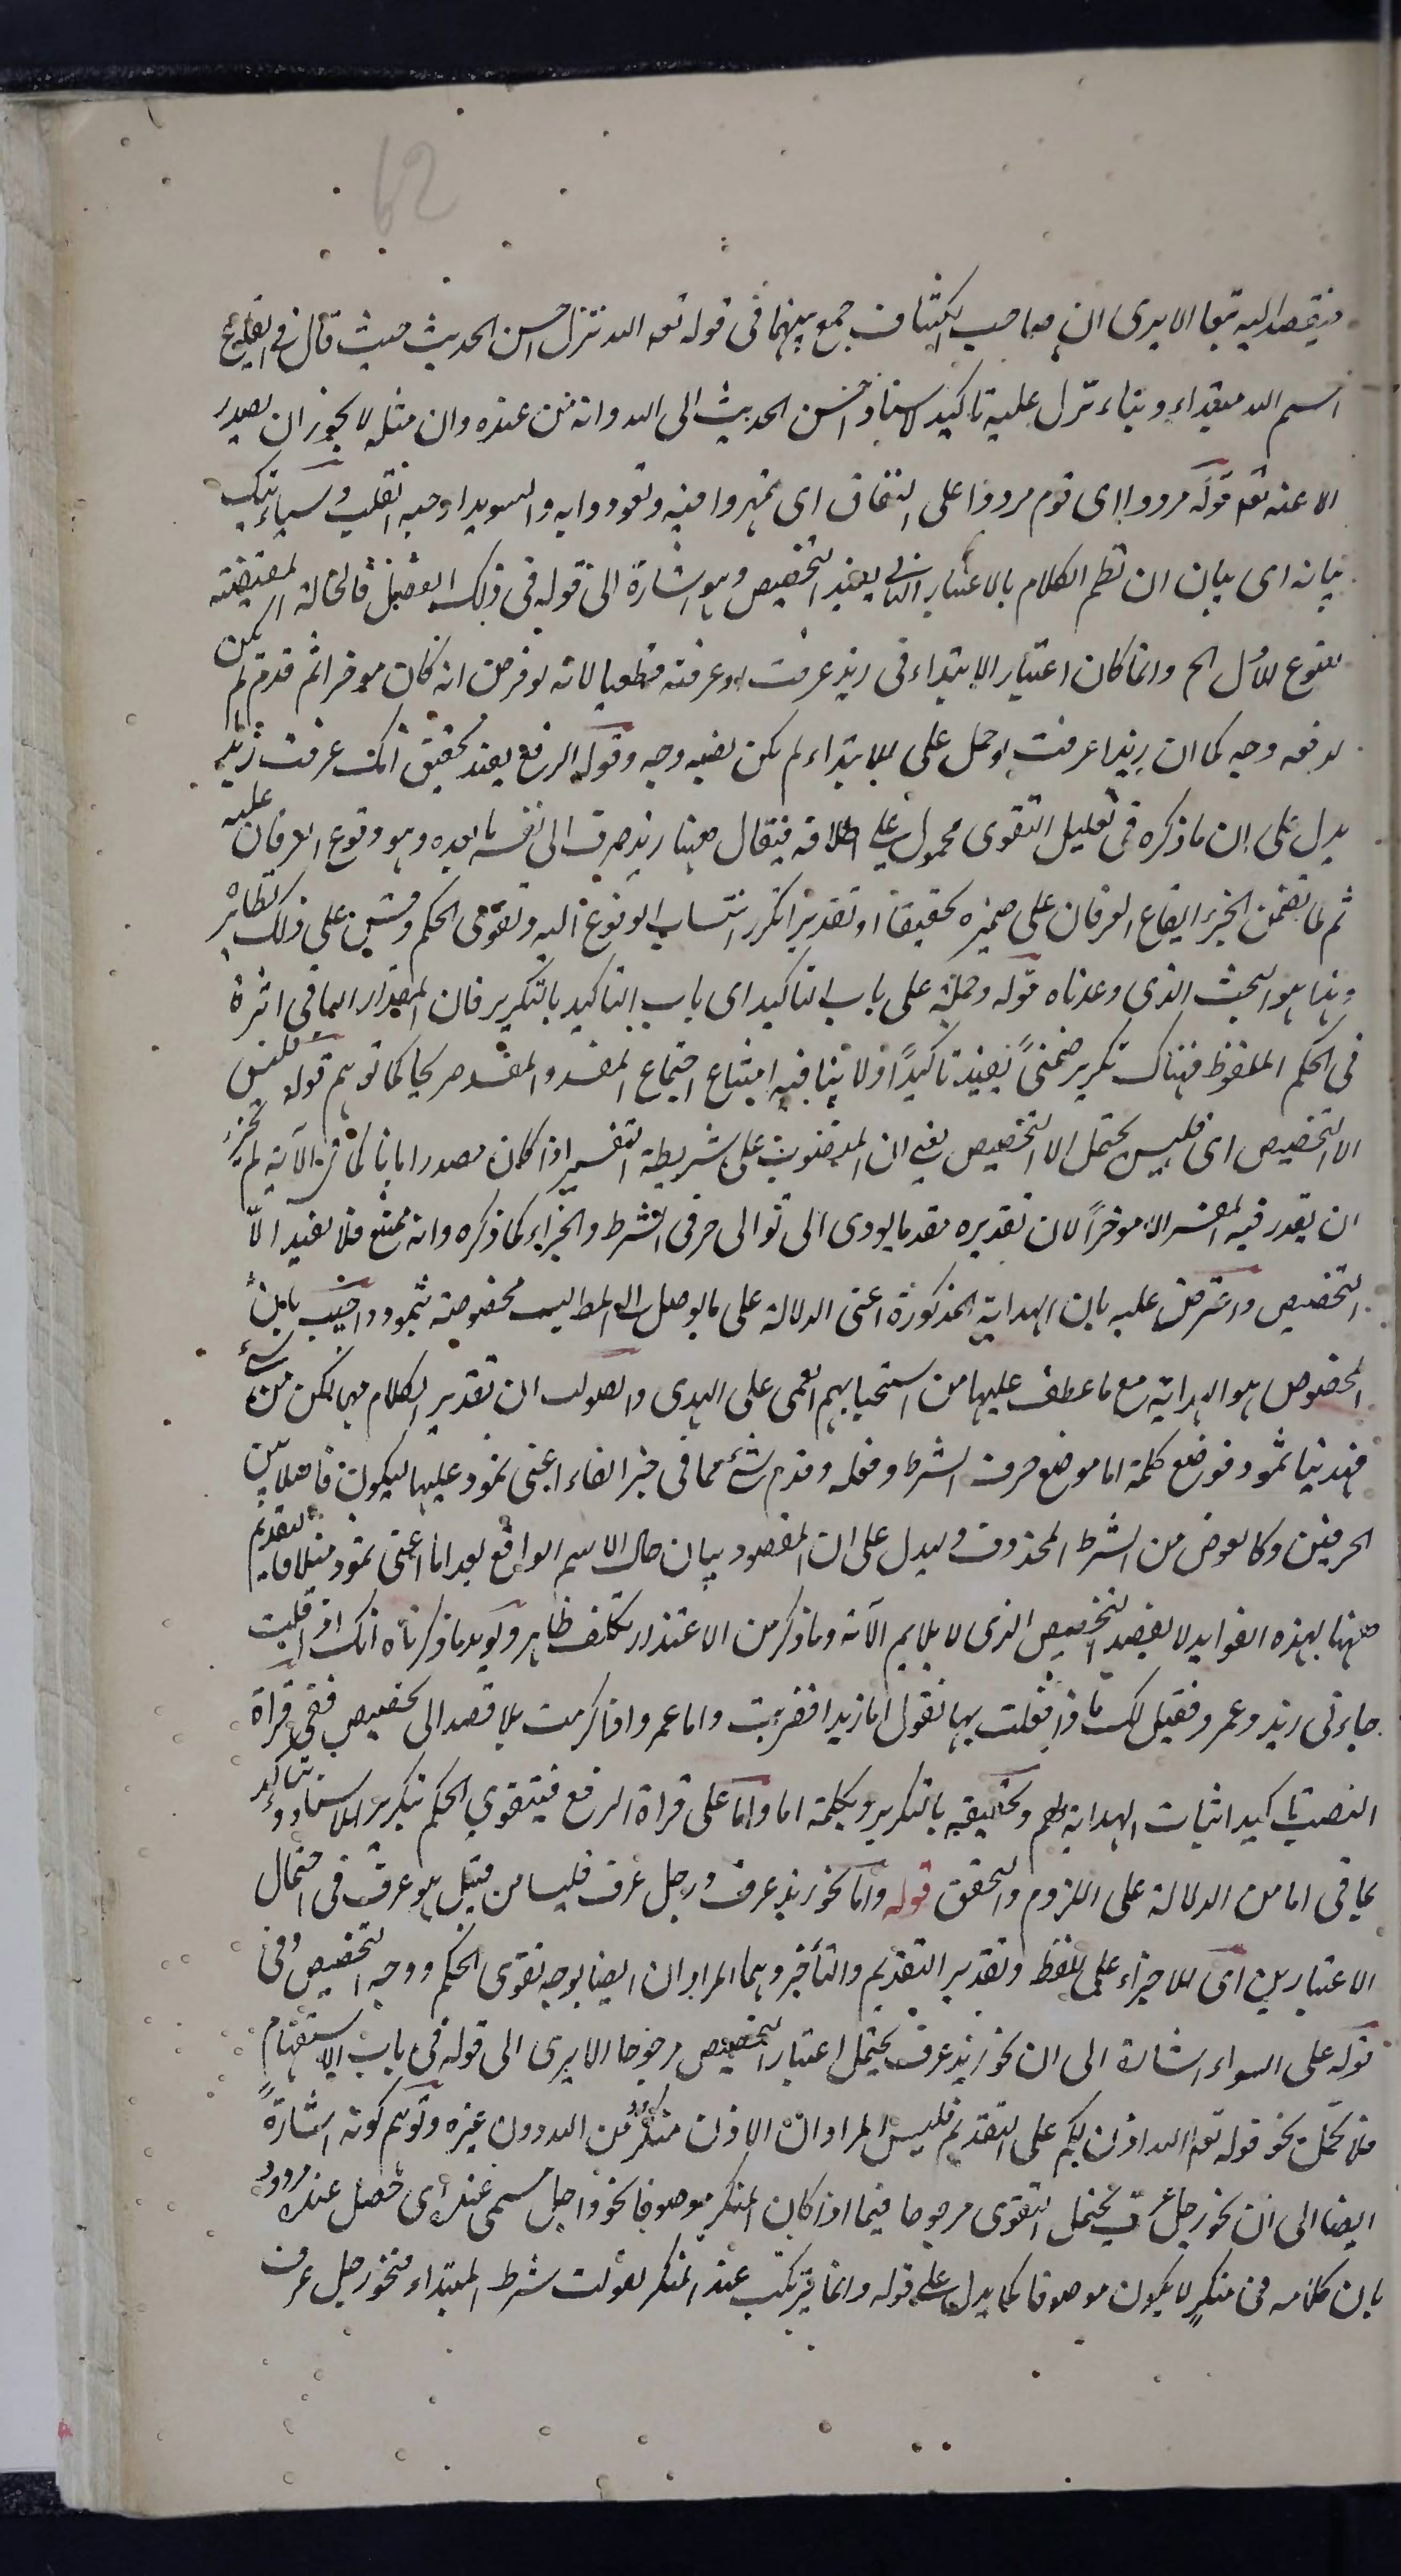 62
فيقصد اليه تبعا الا يرى ان صاحب الكشاف جمع بينهما فى قوله تعه الله نزل احسن الحديث حيث قال فى ايقاع
اسم الله مبتداء وبناء نزل عليه تاكيد لاسناد احسن الحديث الى الله وانه من عنده وان مثله لا يجوز ان يصدر
الا عنه تعه قوله مردوا اى قوم مردوا على النفاق اى تمهروا فيه وتعودوا به والسويدا حبه القلب وسياءتيك
بيانه اى بيان ان نظم الكلام بالاعتبار الثانى يفيد التخصيص وهو اشارة الى قوله فى ذلك الفصل فالحالة المقتضية
لل الخ وانما كان اعتبار الابتداء فى زيد عرفت او عرفته قطعيا لانه لو فرض انه كان موخرا ثم قدم لم يكن
لرفعه وجه كما ان زيدا عرفت لو حمل على الابتداء لم يكن لنصبه وجه وقوله الرفع يفيد تحقيق انك عرفت زيدا
يدل على ان ما ذكره فى تعليل التقوى محمول على اطلاقه فيقال ههنا زيد صرف الى نفسه ما بعده وهو وقوع العرفان عليه
ثم لما تضمن الخبر ايقاع العرفان على ضميره تحقيقا او تقديرا تكرر انتساب الوقوع اليه وتقوى الحكم وقس على ذلك نظائره
وهذا هو البحث الذى وعدناه قوله وحمله على باب التاكيد اى باب التاكيد بالتكرير فان المقدار الباقى اثره
فى الحكم الملفوظ فهناك تكرير ضمنىً يفيد تاكيداً ولا ينافيه امتناع اجتماع المفسر والمفسر صريحا كما توهم قوله فليس
الا التخصيص اى فليس يحتمل الا التخصيص يعنى ان المنصوب على شريطة التفسير اذا كان مصدرا باما كما فى الآية لم يجز
ان يقدر فيه المفسر الا موخراً لان تقديره مقدما يودى الى توالى حرفى الشرط والجزاء كما ذكره وانه ممتنع فلا يفيد الّا
التخصيص واعترض عليه بان الهداية المذكورة اعنى الدلالة على ما يوصل الى المطاليب مخصوصة بثمود واجيب بان
المخصوص هو الهداية مع ما عطف عليها من استحبابهم العمى على الهدى والصواب ان تقدير الكلام مهما يكن من شئ
فهدينا ثمود فوضع كلمة اما موضع حرف الشرط وفعله وقدم شئ مما فى خبر الفاء اعنى ثمود عليها ليكون فاصلا بين
الحرفين وكالعوض من الشرط المحذوف وليدل على ان المقصود بيان حال الاسم الواقع بعد اما اعنى ثمود مثلا فالتقديم
ههنا لهذه الفوايد لا لقصد التخصيص الذى لا يلايم الآية وما ذكر من الاعتذار تكلف ظاهر ويويد ما ذكرناه انك اذا قلت
جاءنى زيد وعمرو فقيل لك ما ذا فعلت بهما تقول اما زيدا فضربت واما عمروا فاكرمت بلا قصد الى تخصيص ففى قراة
النصب تاكيد اثبات الهداية لهم وتحقيقه بالتكرير وبكلمة اما واما على قراة الرفع فيتقوى الحكم بتكرير الاسناد ويتأكد
بما فى اما من الدلالة على اللزوم والتحقق قوله واما نحو زيد عرف ورجل عرف فليسا من قبيل هو عرف فى احتمال
الاعتبارين اى للاجراء على اللفظ وتقدير التقديم والتأخير وهما المرادان ايضا بوجه تقوى الحكم ووجه التخصيص وفى
قوله على السواء اشارة الى ان نحو زيد عرف يحتمل اعتبار التخصيص مرجوحا الا يرى الى قوله فى باب الاستفهام
فلا تحمل نحو قوله تعه الله اذن لكم على التقديم فليس المراد ان الاذن منكر من الله دون غيره وتوهم كونه اشارةً
ايضا الى ان نحو رجل عرف يحتمل التقوى مرجوحا فيما اذا كان المنكر موصوفا نحو واجل مسمى عنده اى فصل عنده مردود
بان كلامه فى منكرٍ لا يكون موصوفا كما يدل عليه قوله وانما يرتكب عند المنكر لفوات شرط المبتداء فنحو رجل عرف